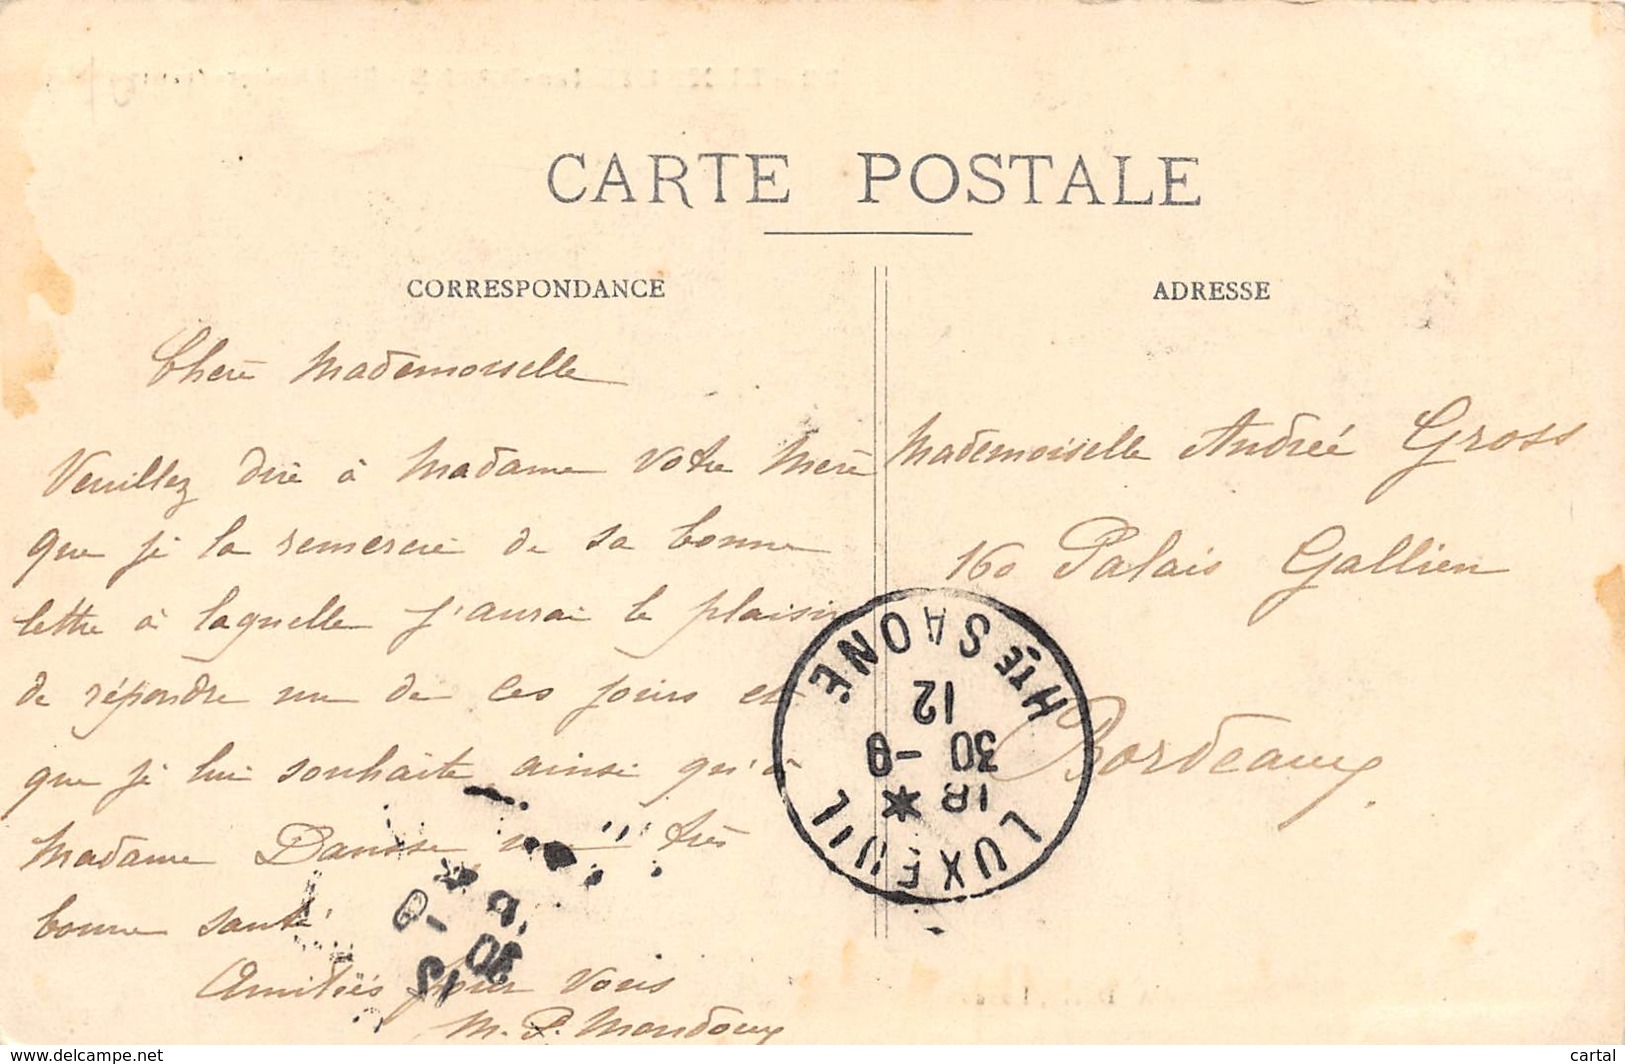 CARTE POSTALE
CORRESPONDANCE
Chère Mademoiselle
Veuillez dire à Madame votre Mère
que je la remercie de sa bonne
lettre à laquelle j'aurai le plaisir
de répondre un de ces jours et
que je lui souhaite ainsi qu'à
Madame Danose une très
bonne santé
Amitiés pour vous
M. P. Mondouy
ADRESSE
Mademoiselle Andrée Gross
160 Palais Gallien
Bordeaux.
LUXEUIL
18 *
30 - 9
12
HTE SAONE
www.delcampe.net
cartal